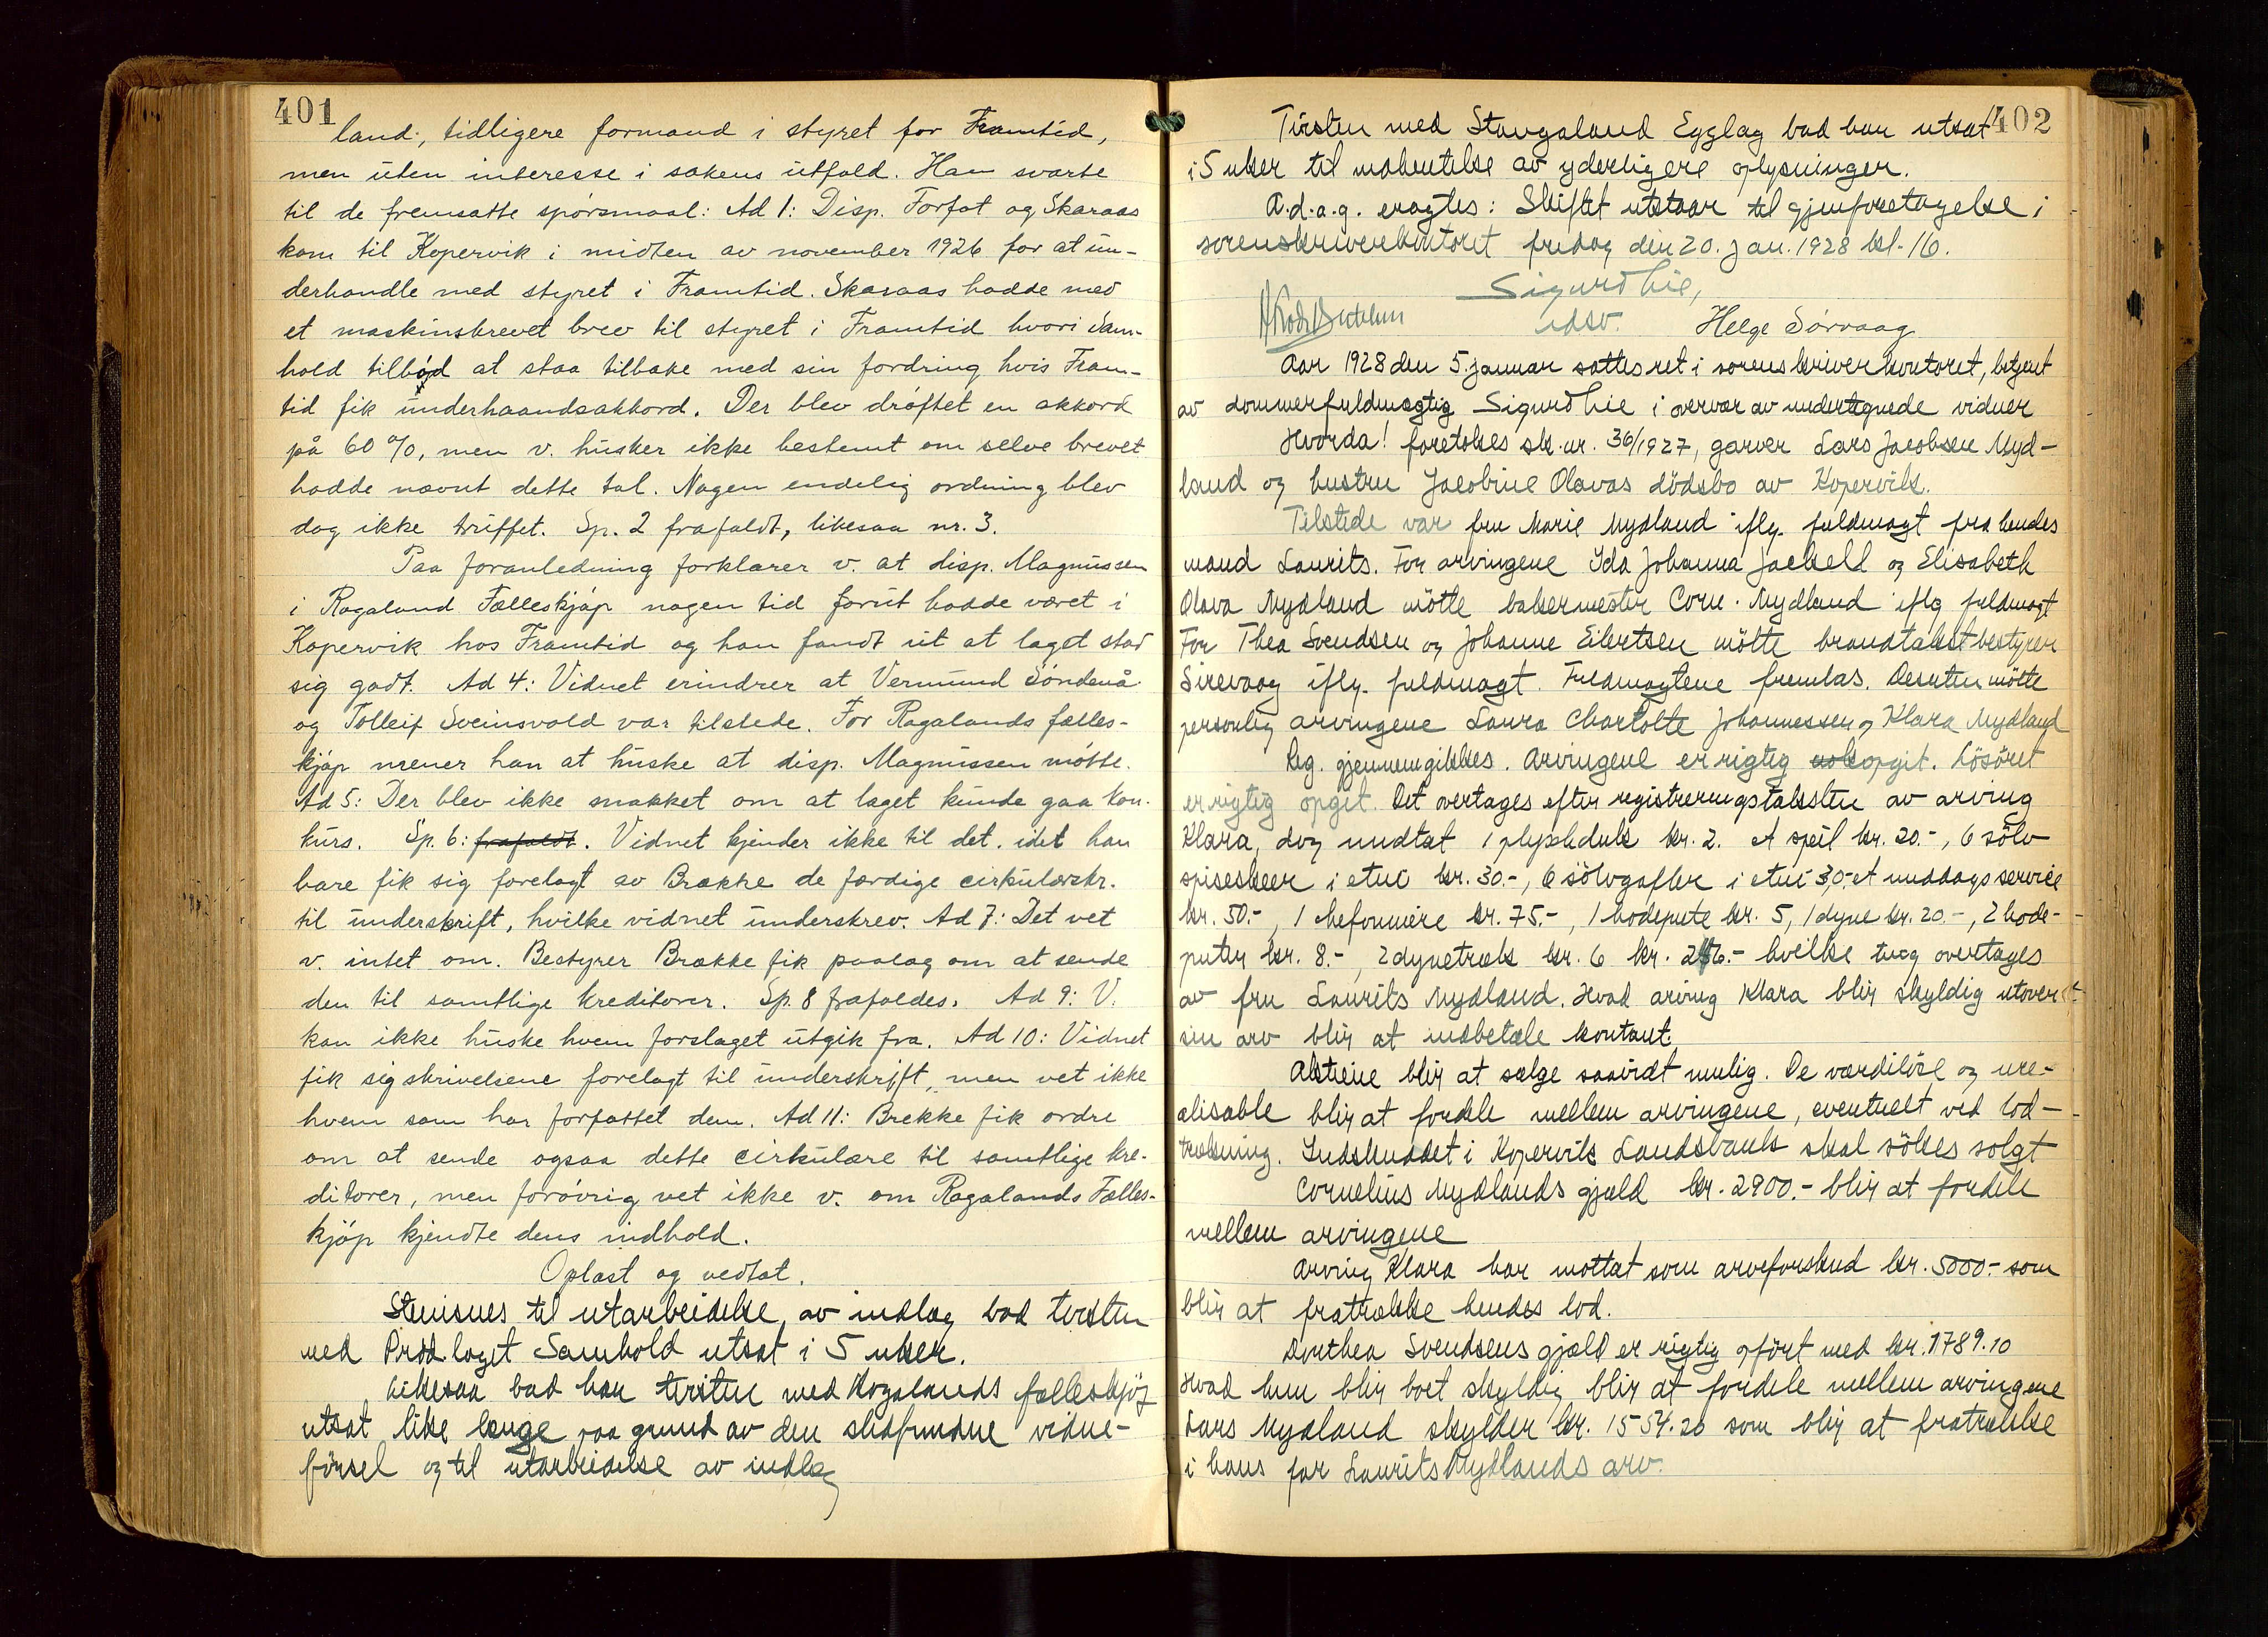 401
land, tidligere formand i styret for Framtid,
men uten interesse i sakens utfald. Han svarte
til de fremsatte spörsmaal: Ad 1: Disp. Forfot og Skaraas
kom til Kopervik i midten av november 1926 for at un-
derhandle med styret i Framtid. Skaraas hadde med
et maskinskrevet brev til styret i Framtid hvori Sam-
hold tilböd at staa tilbake med sin fordring hvis Fram-
tid fik underhaandsakkord. Der blev dröftet en akkord
på 60 %, men v. husker ikke bestemt om selve brevet
hadde nævnt dette tal. Nogen endelig ordning blev
dog ikke truffet. Sp. 2 frafaldt, likesaa nr. 3.
Paa foranledning forklarer v. at disp. Magnussen
i Rogaland Fælleskjöp nogen tid forut hadde været i
Kopervik hos Framtid og han fandt ut at laget stod
sig godt. Ad 4: Vidnet erindrer at Vermund Söndenå
og Tolleif Sveinsvold var tilstede. For Rogalands fælles-
kjöp mener han at huske at disp. Magnussen mötte.
Ad 5: Der blev ikke snakket om at laget kunde gaa kon-
kurs. Sp. 6: frafaldt. Vidnet kjender ikke til det, idet han
bare fik sig forelagt av Brække de færdige cirkulærskr.
til underskrift, hvilke vidnet underskrev. Ad 7: Det vet
v. intet om. Bestyrer Brække fik paalag om at sende
den til samtlige kreditorer. Sp. 8 frafaldes. Ad 9: V.
kan ikke huske hvem forslaget utgik fra. Ad 10: Vidnet
fik sig skrivelsene forelagt til underskrift, men vet ikke
hvem som har forfattet dem. Ad 11: Brekke fik ordre
om at sende ogsaa dette cirkulære til samtlige kre-
ditorer, men forövrig vet ikke v. om Rogalands Fælles-
kjöp kjendte dens indhold.
Oplæst og vedtat.
Stenisnes til utarbeidelse av indlæg bad tvisten
med Prod.laget Samhold utsat i 5 uker.
Likesaa bad han tvisten med Rogalands fælleskjöp
utsat like længe paa grund av den stedfundne vidne-
försel og til utarbeidelse av indlæg
402
Tvisten med Stangaland Egglag bad han utsat
i 5 uker til indhentelse av yderligere oplysninger.
A.d.a.g. eragtes: Skiftet utstaar til gjenforetagelse i
sorenskriverkontoret fredag den 20. jan. 1928 kl. 16.
Sigurd Lie,
edsv. Helge Sörvaag
Aar 1928 den 5. januar sattes ret i sorenskriverkontoret, betjent
av dommerfuldmægtig Sigurd Lie i overvær av undertegnede vidner
Hvorda! foretokes sk. nr. 36/1927, garver Lars Jacobsen Myd-
land og hustru Jacobine Olavas dödsbo av Kopervik.
Tilstede var fru Marie Mydland iflg. fuldmagt fra hendes
mand Laurits. For arvingene Ida Johanna Jaekell og Elisabeth
Olava Mydland mötte bakermester Corn. Mydland iflg fuldmagt
For Thea Svendsen og Johanne Eilertsen mötte brandtakstbestyrer
Sirevaag iflg. fuldmagt. Fuldmagtene fremlas. Desuten mötte
personlig arvingene Laura Charlotte Johannessen og Klara Mydland
Reg. gjennemgikkes. Arvingene er rigtig opgit. Lösöret
er rigtig opgit. Det overtages efter registreringstaksten av arving
Klara, dog undtat 1 plyschduk kr. 2. et speil kr. 20.-, 6 sölv
spiseskeer i etui kr. 30.-, 6 sölvgafler i etui 30.- et middags service
kr. 50.-, 1 chefonniere kr. 75.-, 1 hodepute kr. 5, 1 dyne kr. 20.-, 2 hode-
puter kr. 8.-, 2 dynetræk kr. 6 kr. 246.- hvilke ting overtages
av fru Laurits Mydland. Hvad arving Klara blir skyldig utover
sin arv blir at indbetale kontant.
Aktiene blir at sælge saavidt mulig. De værdilöse og ure-
alisable blir at fordele mellem arvingene, eventuelt ved lod-
trækning. Indskuddet i Kopervik Landsbank skal sökes solgt
Cornelius Mydlands gjæld kr. 2900.- blir at fordele
mellem arvingene
Arving Klara har mottat som arveforskud kr. 5000.- som
blir at fratrække hendes lod.
Dorthea Svendsens gjæld er rigtig opfört med kr. 1789.10
Hvad hun blir boet skyldig blir at fordele mellem arvingene
Lars Mydland skylder kr. 1554.20 som blir at fratrække
i hans far Laurits Mydlands arv.